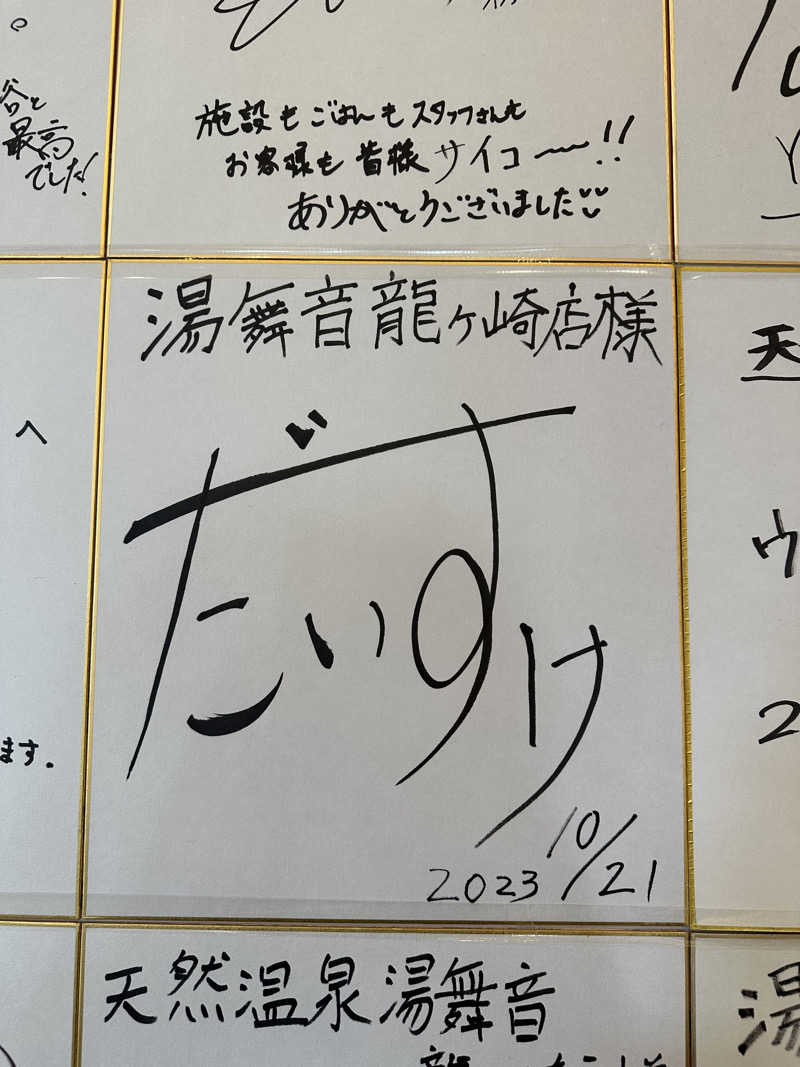 谷と
最高
でした!
施設もごはんもスタッフさんも
お客様も皆様サイコ〜!!
ありがとうございました
湯舞音龍ヶ崎店様
だいすけ
2023 10/21
へ
ます。
天
ウ
2
天然温泉湯舞音
湯